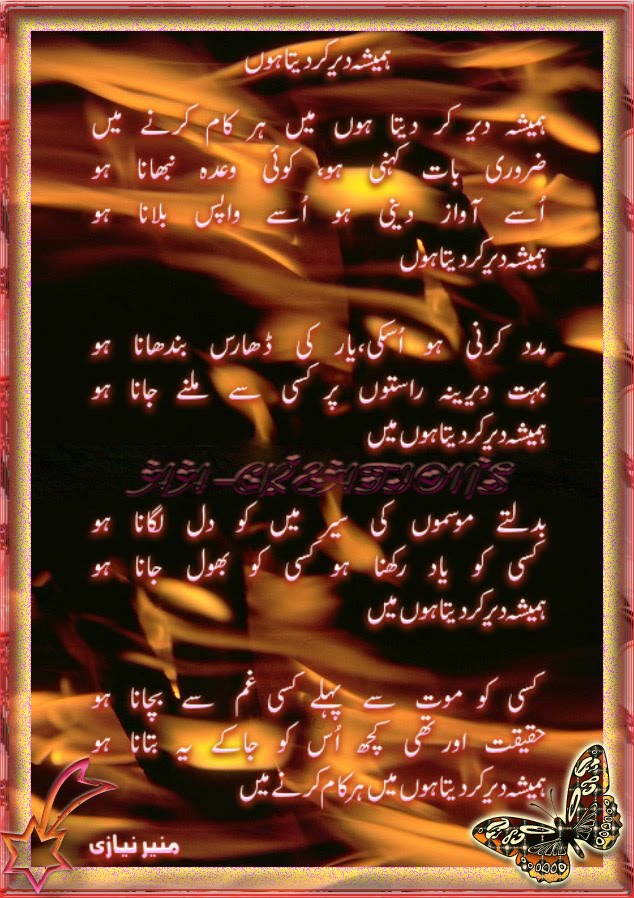 ہمیشہ دیر کر دیتا ہوں
ہمیشہ دیر کر دیتا ہوں میں ہر کام کرنے میں
ضروری بات کہنی ہو، کوئی وعدہ نبھانا ہو
اُسے آواز دینی ہو اُسے واپس بلانا ہو
ہمیشہ دیر کر دیتا ہوں
مدد کرنی ہو اُسکی، یار کی ڈھارس بندھانا ہو
بہت دیرینہ راستوں پر کسی سے ملنے جانا ہو
ہمیشہ دیر کر دیتا ہوں میں
بدلتے موسموں کی سیر میں کو دل لگانا ہو
کسی کو یاد رکھنا ہو کسی کو بھول جانا ہو
ہمیشہ دیر کر دیتا ہوں میں
کسی کو موت سے پہلے کسی غم سے بچانا ہو
حقیقت اور تھی کچھ اُس کو جاکے یہ بتانا ہو
ہمیشہ دیر کر دیتا ہوں میں ہر کام کرنے میں
منیر نیازی